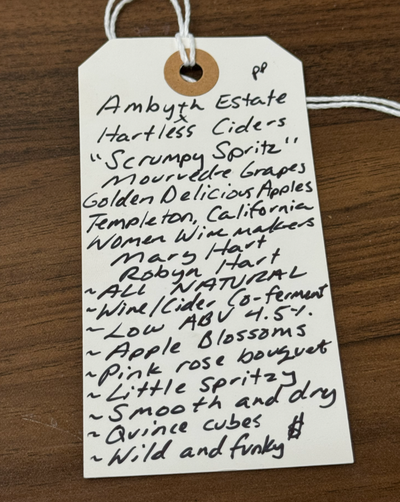 pp
Ambyth Estate
x
Hartless Ciders
"Scrumpy Spritz"
Mourvedre Grapes
Golden Delicious Apples
Templeton, California
Women Wine makers
Mary Hart
Robyn Hart
~ ALL NATURAL
~ Wine/Cider Co-ferment
~ Low ABV 4.5%
~ Apple Blossoms
~ Pink rose bouquet
~ Little spritzy
~ Smooth and dry
~ Quince cubes
~ Wild and funky #